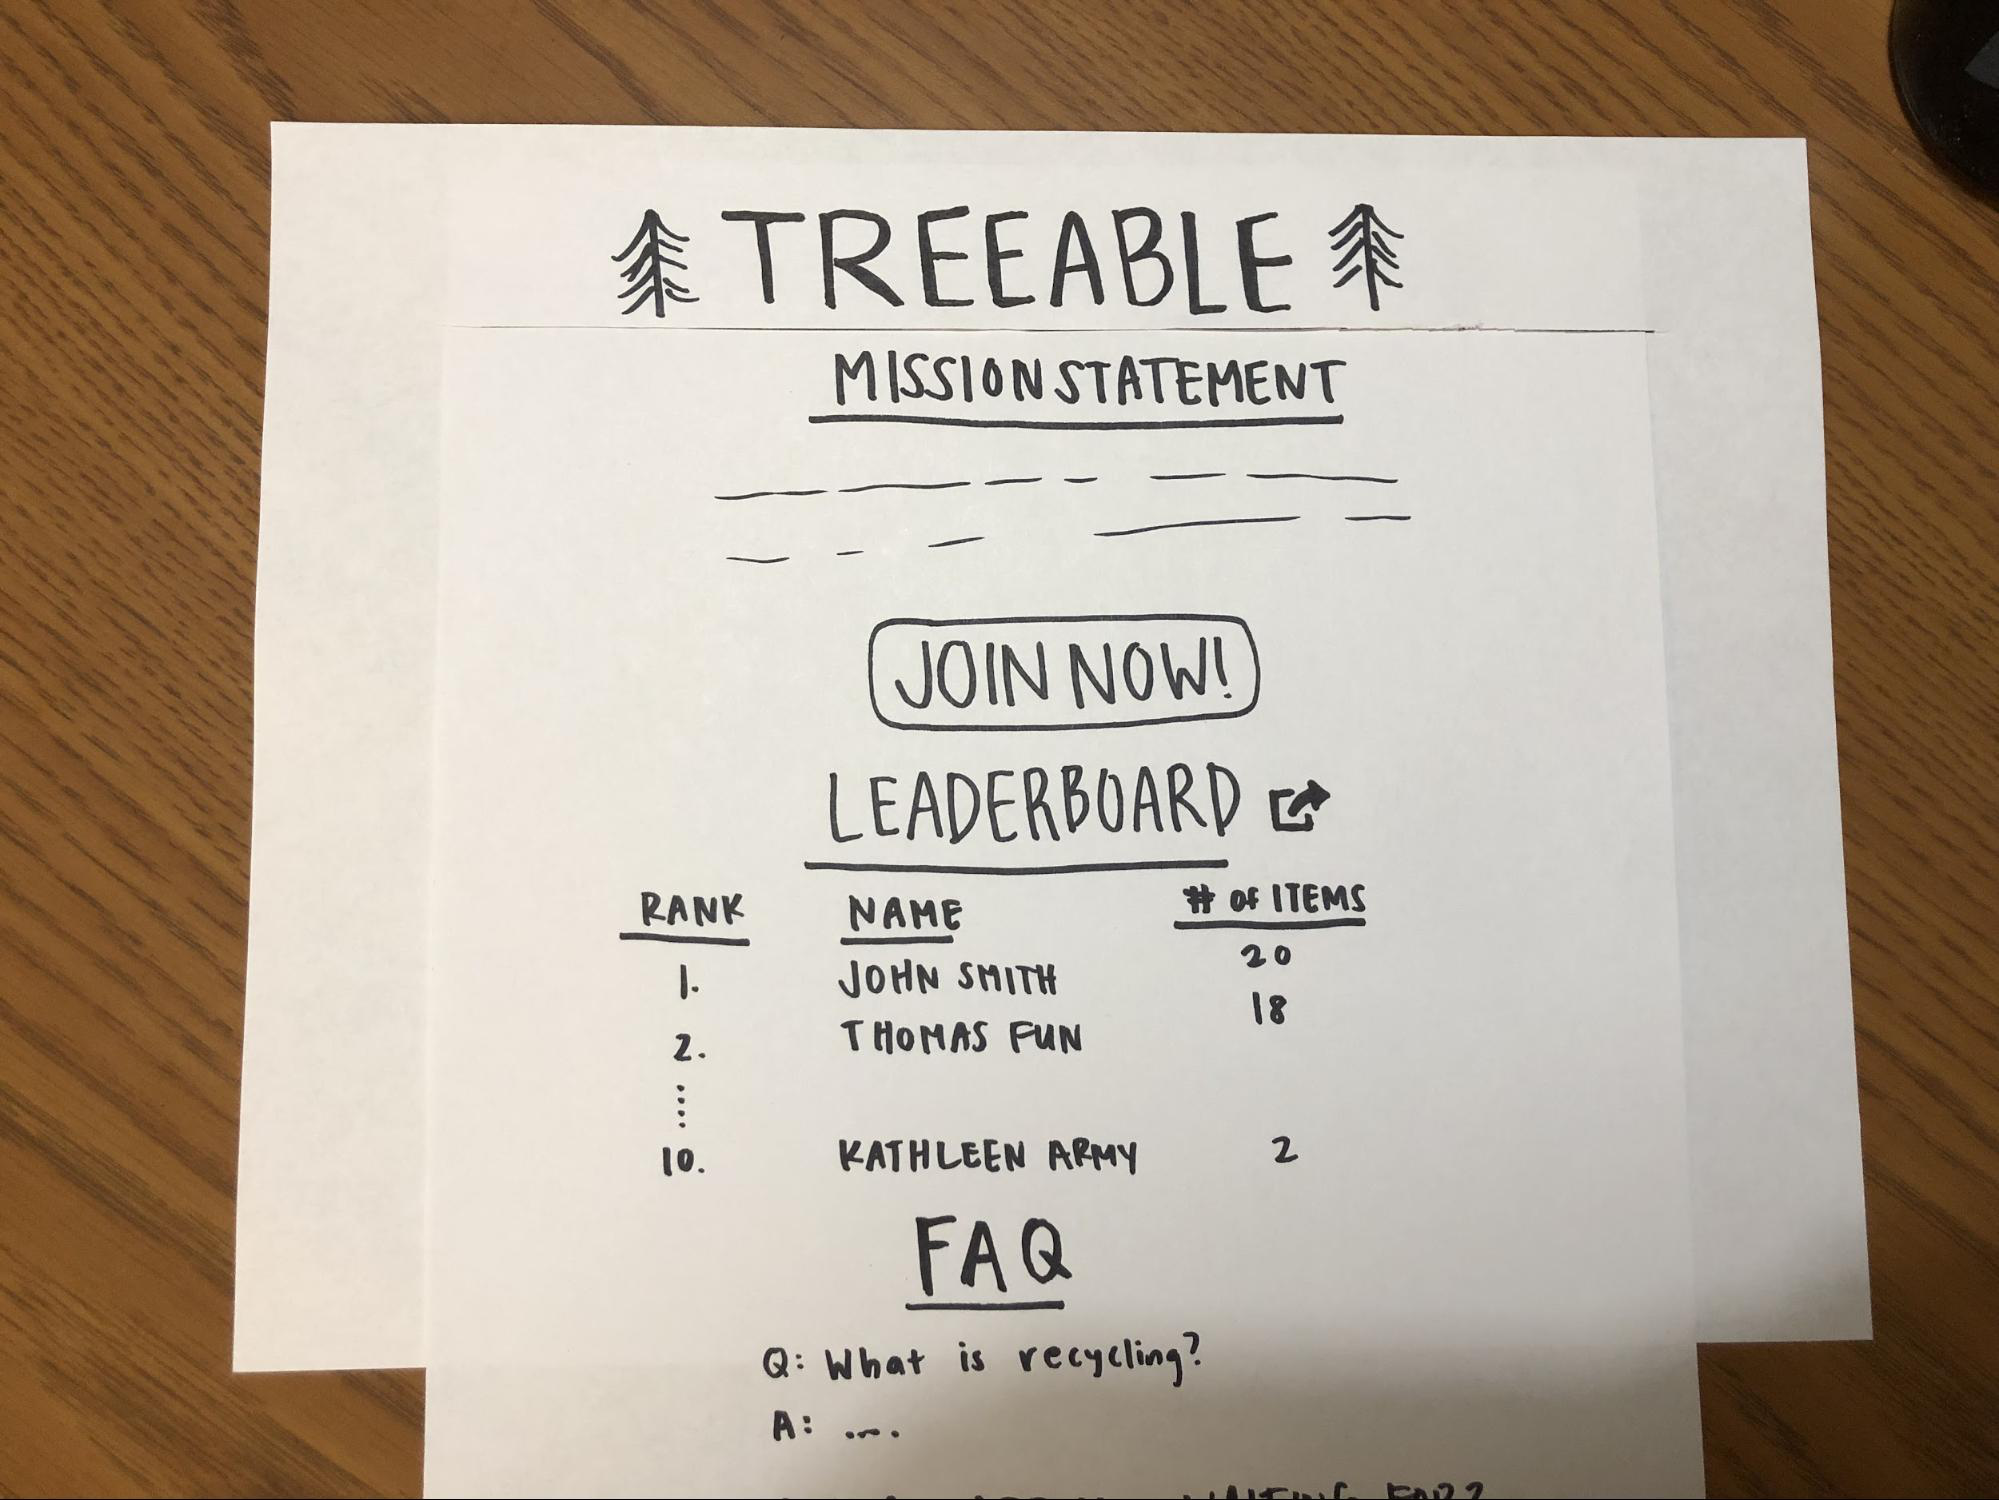 TREEABLE
MISSION STATEMENT
JOIN NOW!
LEADERBOARD
RANK NAME # of ITEMS
1. JOHN SMITH 20
2. THOMAS FUN 18
10. KATHLEEN ARMY 2
FAQ
Q: What is recycling?
A: ....
WAITING FOR?